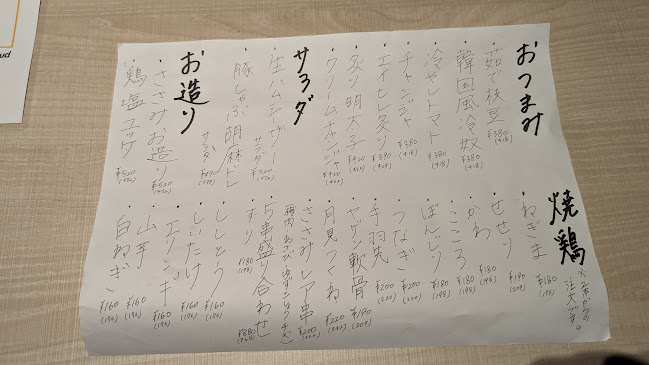 おつまみ
・茹で枝豆 ¥380 (418)
・韓国風冷奴 ¥380 (418)
・冷やしトマト ¥380 (418)
・チャンジャ ¥380 (418)
・エイヒレ炙り ¥390
・炙り明太子 ¥420
・クリームチャンジャ ¥420
サラダ
・生ハムシーザーサラダ ¥520
・豚しゃぶ胡麻ドレサラダ
お造り
・ささみお造り ¥520
・鶏塩ユッケ ¥520
焼鶏
・ねぎま ¥180 (198)
・せせり
・かわ ¥180 (198)
・こころ ¥180 (198)
・ぼんじり ¥180 (198)
・つなぎ ¥200 (220)
・手羽先 ¥200 (220)
・ヤゲン軟骨 ¥190 (209)
・月見つくね ¥220 (242)
・ささみレア串 ¥200 (220)
・5串盛り合わせ ¥880 (968)
・ずり ¥180 (198)
・ししとう ¥160
・しいたけ ¥160
・エリンギ ¥160
・山芋 ¥160
・白ねぎ ¥160